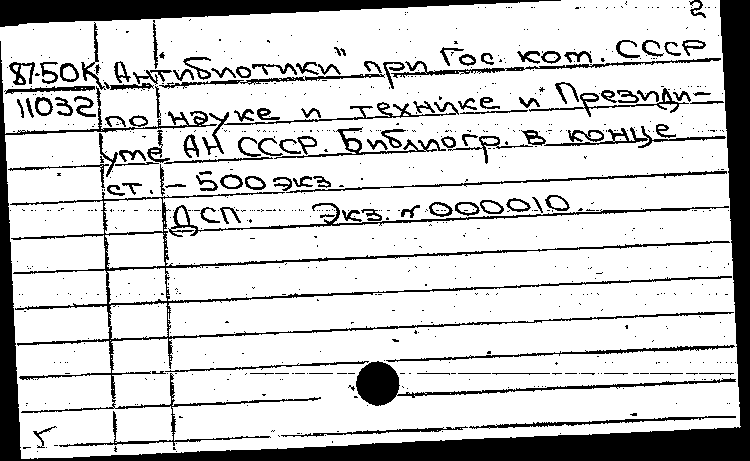 2
87-50К „Антибиотики" при Гос. ком. СССР
11032 по науке и технике и Президи-
уме АН СССР. Библиогр. в конце
ст. – 500 экз.
ДСП. Экз. №000010.